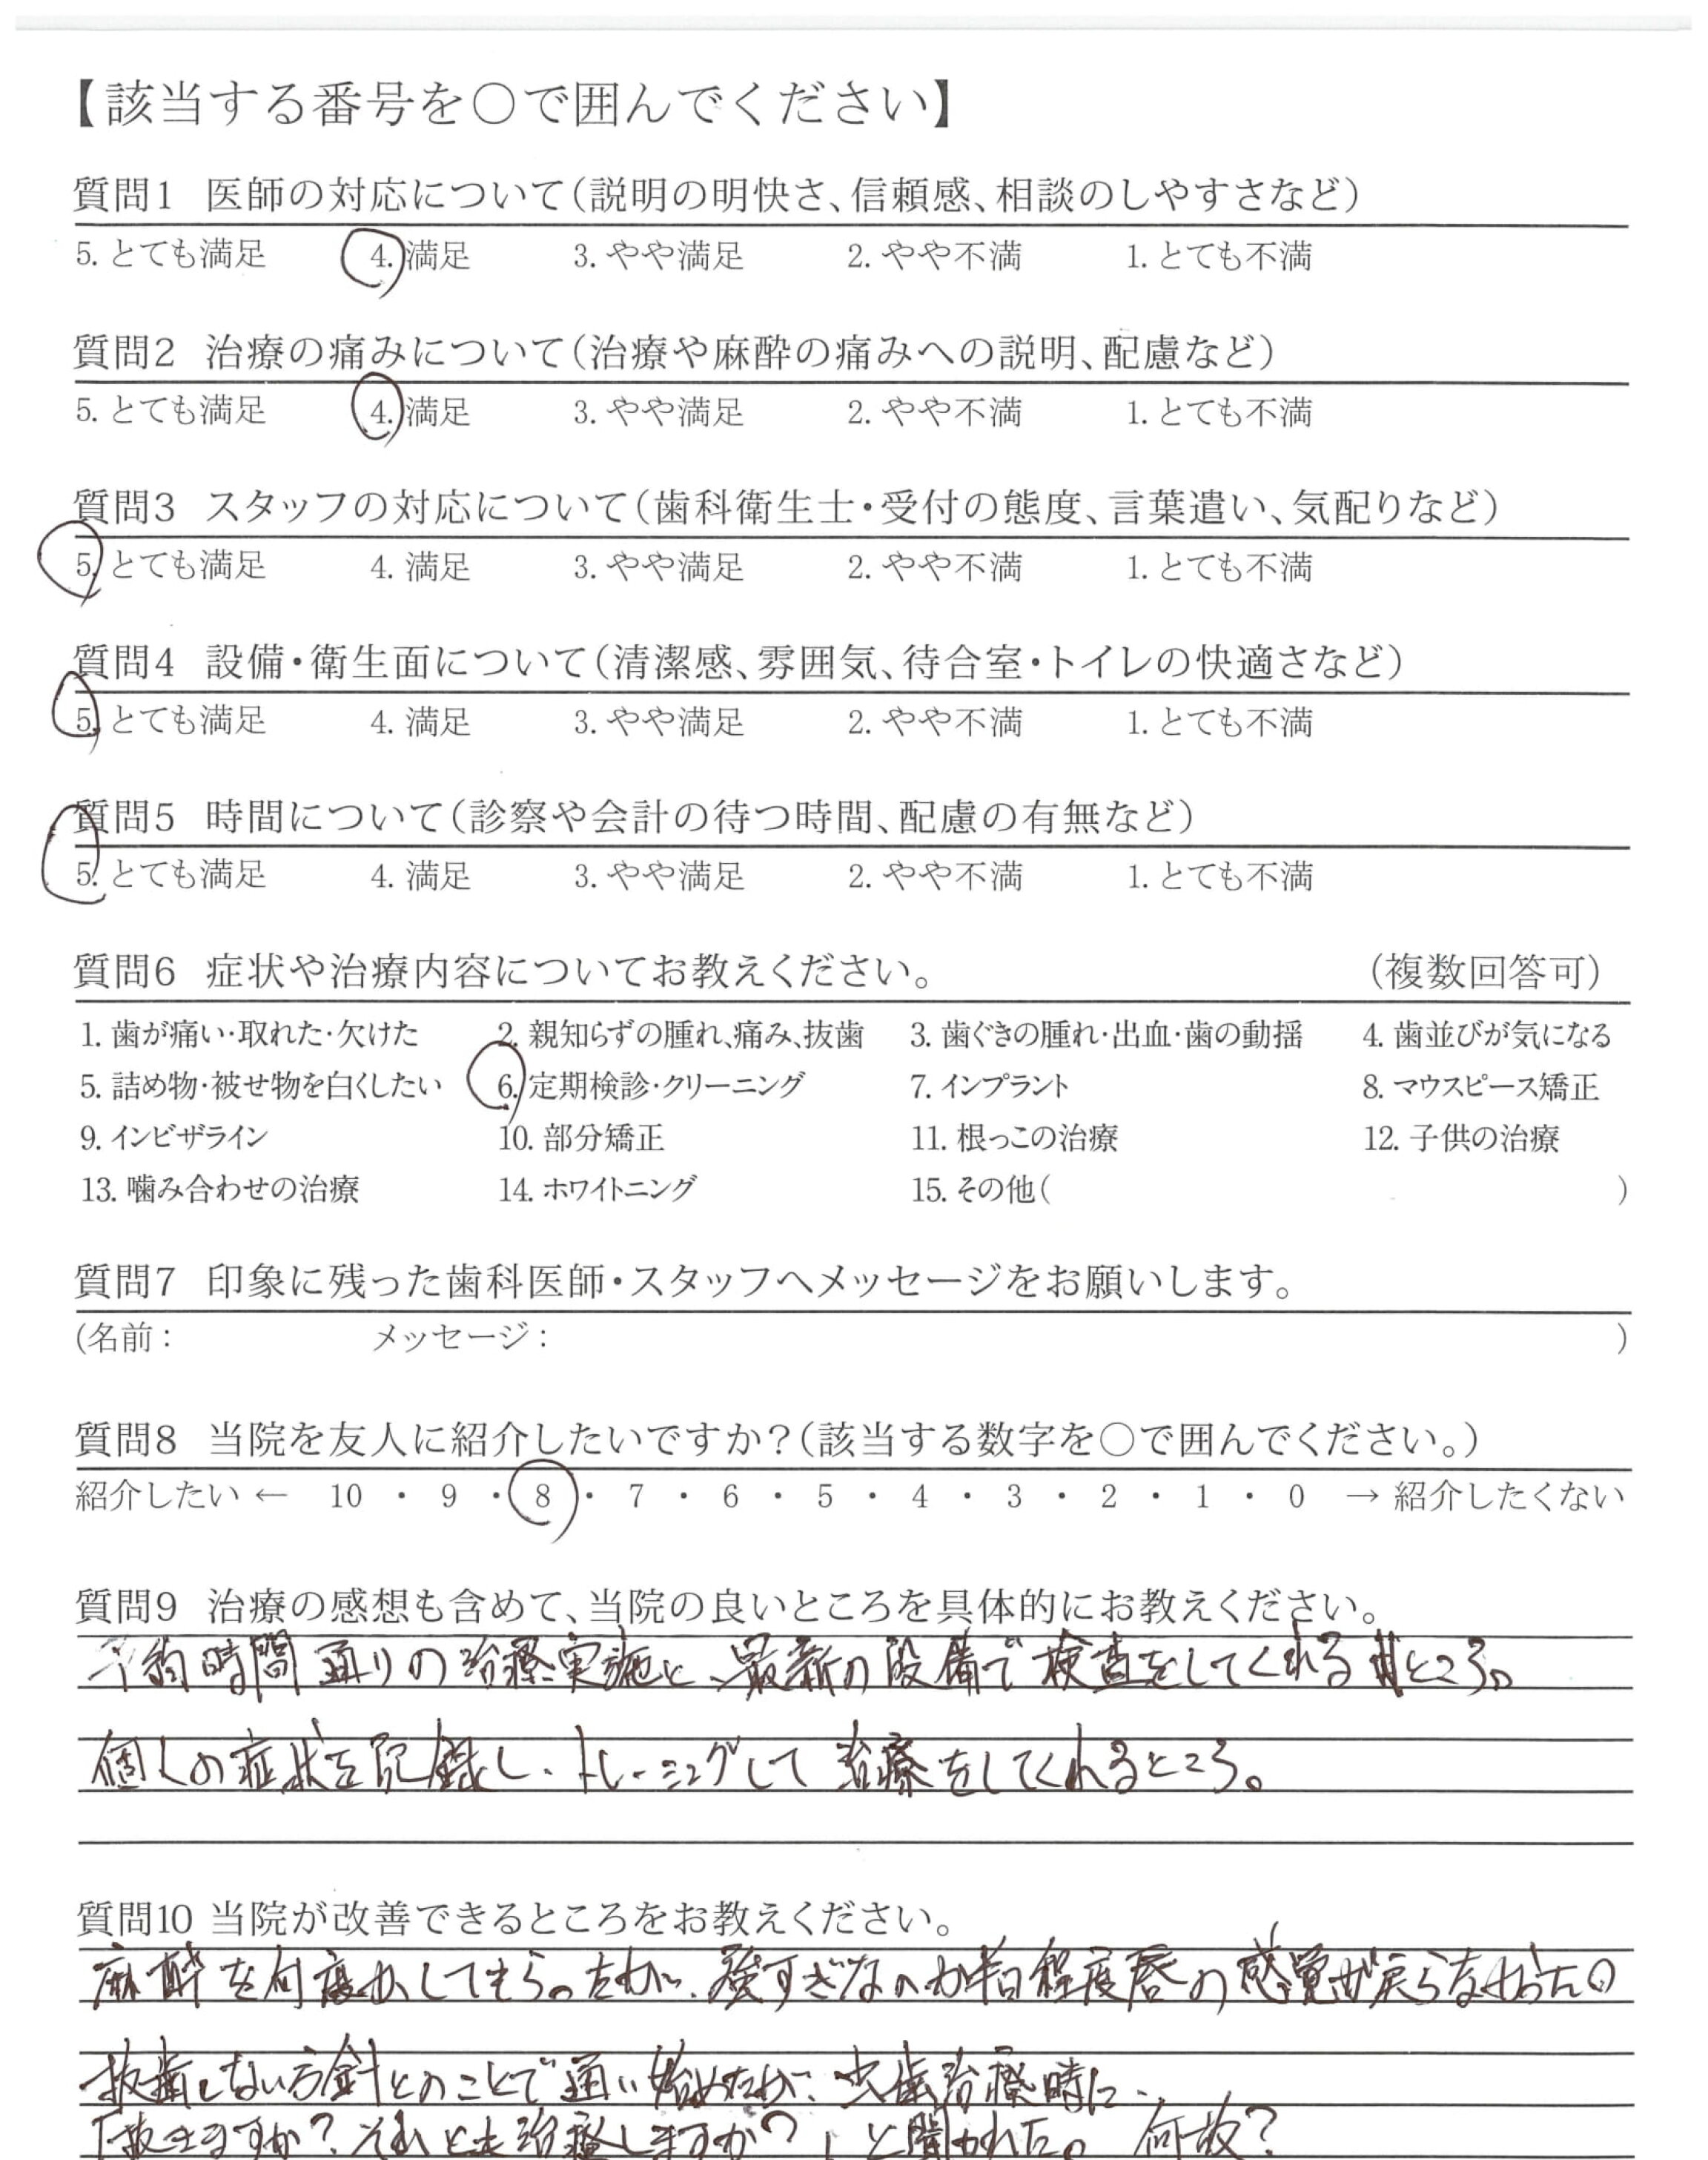 【該当する番号を○で囲んでください】
質問1 医師の対応について(説明の明快さ、信頼感、相談のしやすさなど)
5. とても満足 4. 満足 3. やや満足 2. やや不満 1. とても不満
質問2 治療の痛みについて(治療や麻酔の痛みへの説明、配慮など)
5. とても満足 4. 満足 3. やや満足 2. やや不満 1. とても不満
質問3 スタッフの対応について(歯科衛生士・受付の態度、言葉遣い、気配りなど)
5. とても満足 4. 満足 3. やや満足 2. やや不満 1. とても不満
質問4 設備・衛生面について(清潔感、雰囲気、待合室・トイレの快適さなど)
5. とても満足 4. 満足 3. やや満足 2. やや不満 1. とても不満
質問5 時間について(診察や会計の待つ時間、配慮の有無など)
5. とても満足 4. 満足 3. やや満足 2. やや不満 1. とても不満
質問6 症状や治療内容についてお教えください。 (複数回答可)
1. 歯が痛い・取れた・欠けた 2. 親知らずの腫れ、痛み、抜歯 3. 歯ぐきの腫れ・出血・歯の動揺 4. 歯並びが気になる
5. 詰め物・被せ物を白くしたい 6. 定期検診・クリーニング 7. インプラント 8. マウスピース矯正
9. インビザライン 10. 部分矯正 11. 根っこの治療 12. 子供の治療
13. 噛み合わせの治療 14. ホワイトニング 15. その他( )
質問7 印象に残った歯科医師・スタッフへメッセージをお願いします。
(名前: メッセージ: )
質問8 当院を友人に紹介したいですか?(該当する数字を○で囲んでください。)
紹介したい ← 10 ・ 9 ・ 8 ・ 7 ・ 6 ・ 5 ・ 4 ・ 3 ・ 2 ・ 1 ・ 0 → 紹介したくない
質問9 治療の感想も含めて、当院の良いところを具体的にお教えください。
予約時間通りの治療実施と、最新の設備で検査をしてくれるところ。
個人の症状を記録し、トレーニングして治療をしてくれるところ。
質問10 当院が改善できるところをお教えください。
麻酔を何度かしてもらったが、強すぎなのか半日程度唇の感覚が戻らなかった。
抜歯しない方針とのことで通い始めたが、虫歯治療時に、
「抜きますか?それとも治療しますか?」と聞かれた。何故?